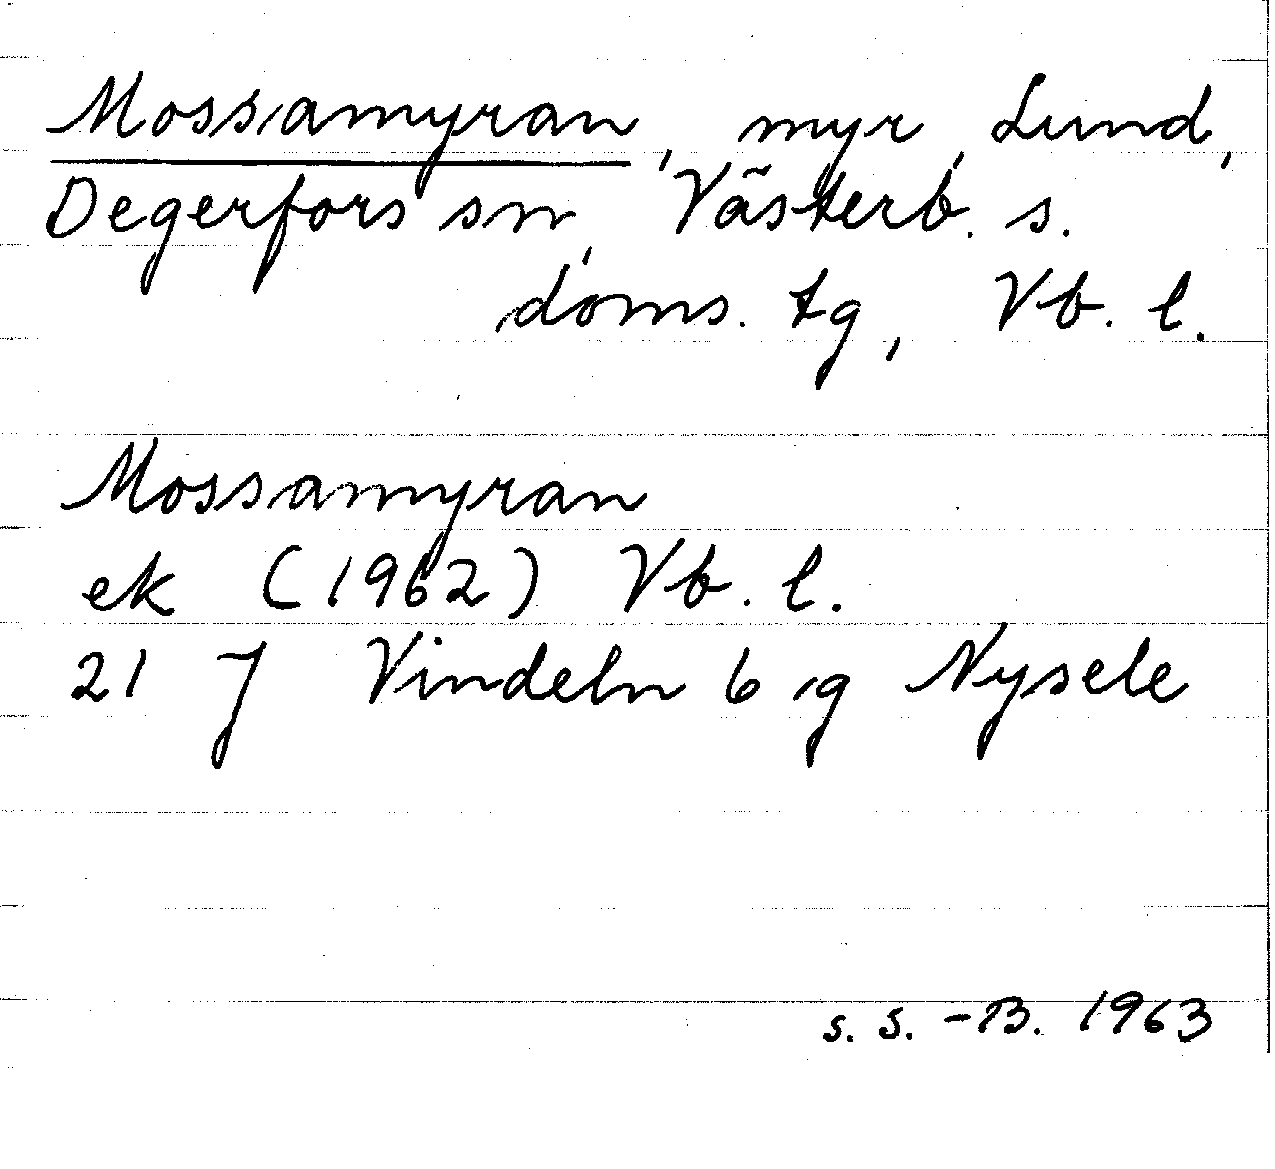 Mossamyran, myr, Lund,
Degerfors sn, Västerb. s.
doms. tg, Vb. l.
Mossamyran
ek (1962) Vb. l.
21 J Vindeln 6 g Nysele
s. S. -B. 1963